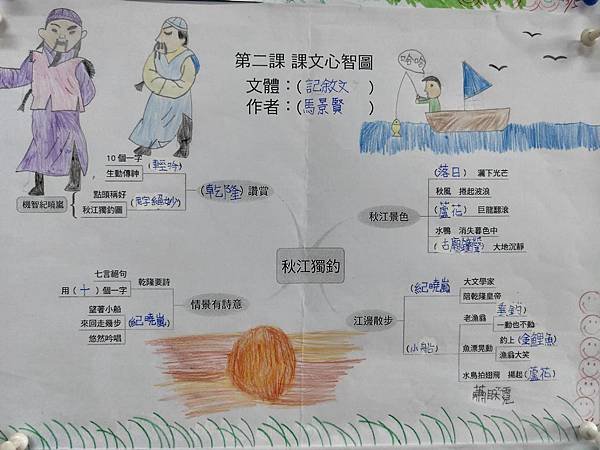 第二課 課文心智圖
文體：(記敘文)
作者：(馬景賢)
哈哈
10個一字 (輕吟)
生動傳神
(乾隆) 讚賞
點頭稱好
機智紀曉嵐
秋江獨釣圖
秋江景色
(落日) 灑下光芒
秋風 捲起波浪
(蘆花) 巨龍翻滾
水鴨 消失暮色中
大地沉靜
秋江獨釣
情景有詩意
七言絕句 乾隆要詩
用(十)個一字
望著小船
來回走幾步 (紀曉嵐)
悠然吟唱
江邊散步
(紀曉嵐) 大文學家
陪乾隆皇帝
(小船) 老漁翁 (垂釣)
一動也不動
魚漂晃動 釣上(金鯉魚)
漁翁大笑
水鳥拍翅飛 揚起(蘆花)